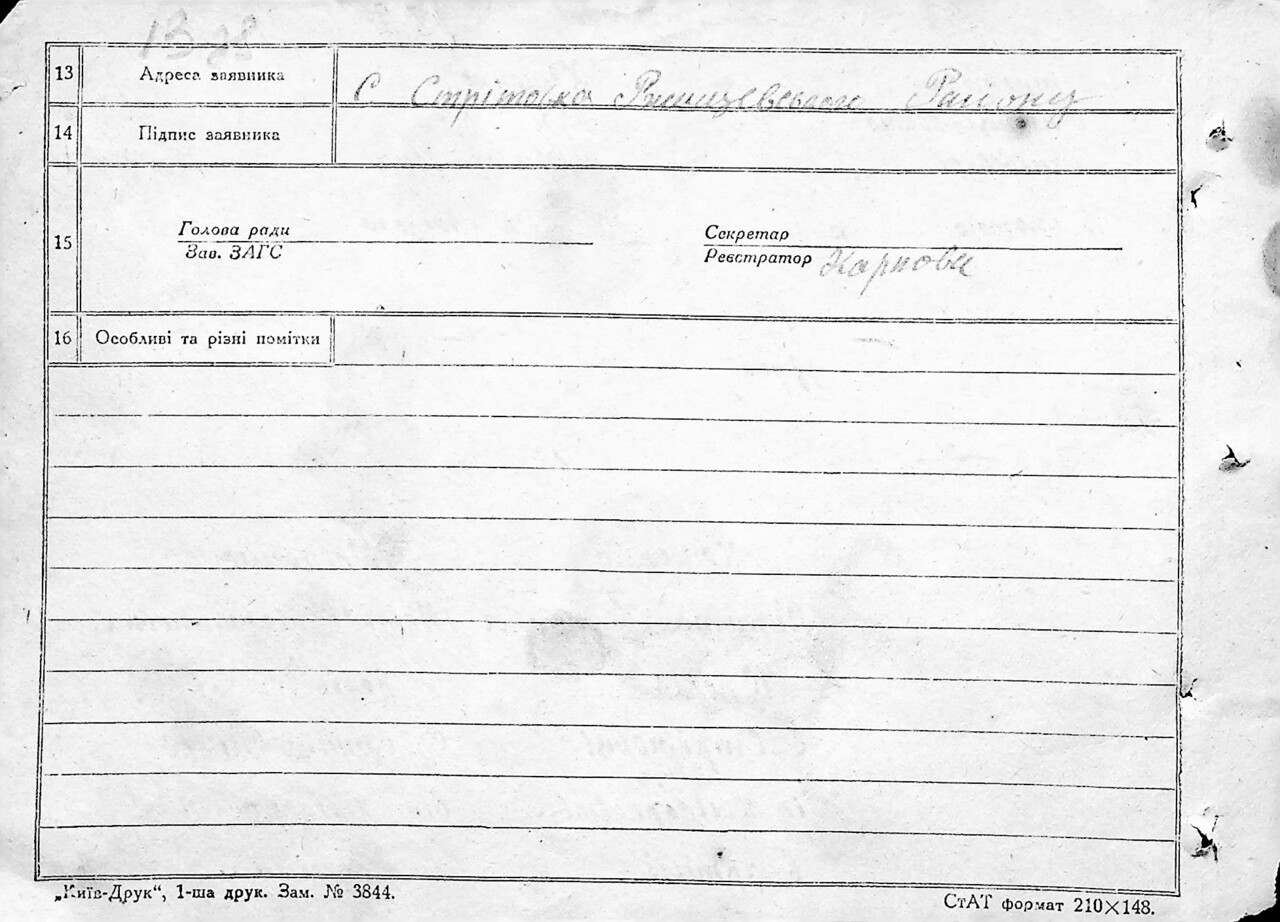 13 Адреса заявника С Стрітовка Ржищевського Району
14 Підпис заявника
Голова ради Секретар
15
Зав. ЗАГС Реєстратор Карпова
16 Особливі та різні помітки
„Київ-Друк“, 1-ша друк. Зам. № 3844. СтАТ формат 210×148.